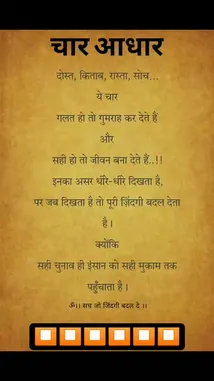 चार आधार
दोस्त, किताब, रास्ता, सोच...
ये चार
गलत हो तो गुमराह कर देते हैं
और
सही हो तो जीवन बना देते हैं..!!
इनका असर धीरे-धीरे दिखता है,
पर जब दिखता है तो पूरी ज़िंदगी बदल देता
है।
क्योंकि
सही चुनाव ही इंसान को सही मुकाम तक
पहुँचाता है।
ॐ।। सच जो जिंदगी बदल दे ।।